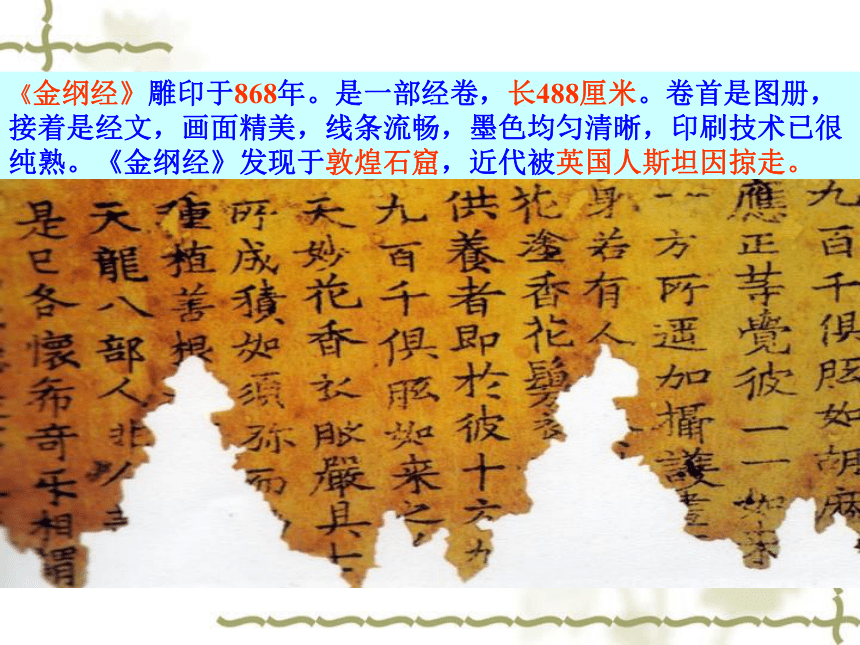 《金纲经》雕印于868年。是一部经卷，长488厘米。卷首是图册，
接着是经文，画面精美，线条流畅，墨色均匀清晰，印刷技术已很
纯熟。《金纲经》发现于敦煌石窟，近代被英国人斯坦因掠走。
九百千俱胝如胡麻
應正等覺彼一一如来
一方所遥加攝護
身若有人
花塗香花鬘衣
供養者即於彼十六九
九百千俱胝如来之
天妙花香衣服嚴具七
所成積如須弥而
種植善根
天龍八部人非人
是已各懷希奇乐相謂